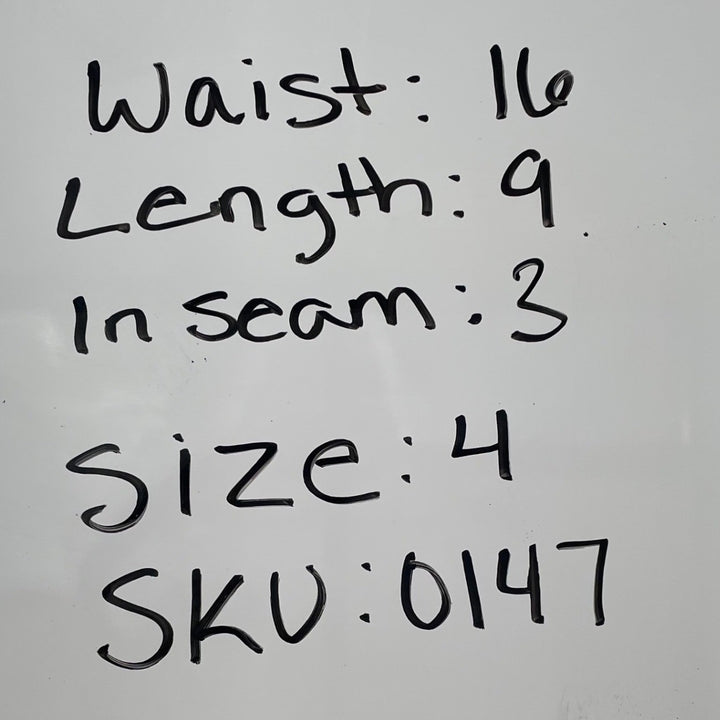 Waist: 16
Length: 9
In seam: 3
Size: 4
SKU: 0147